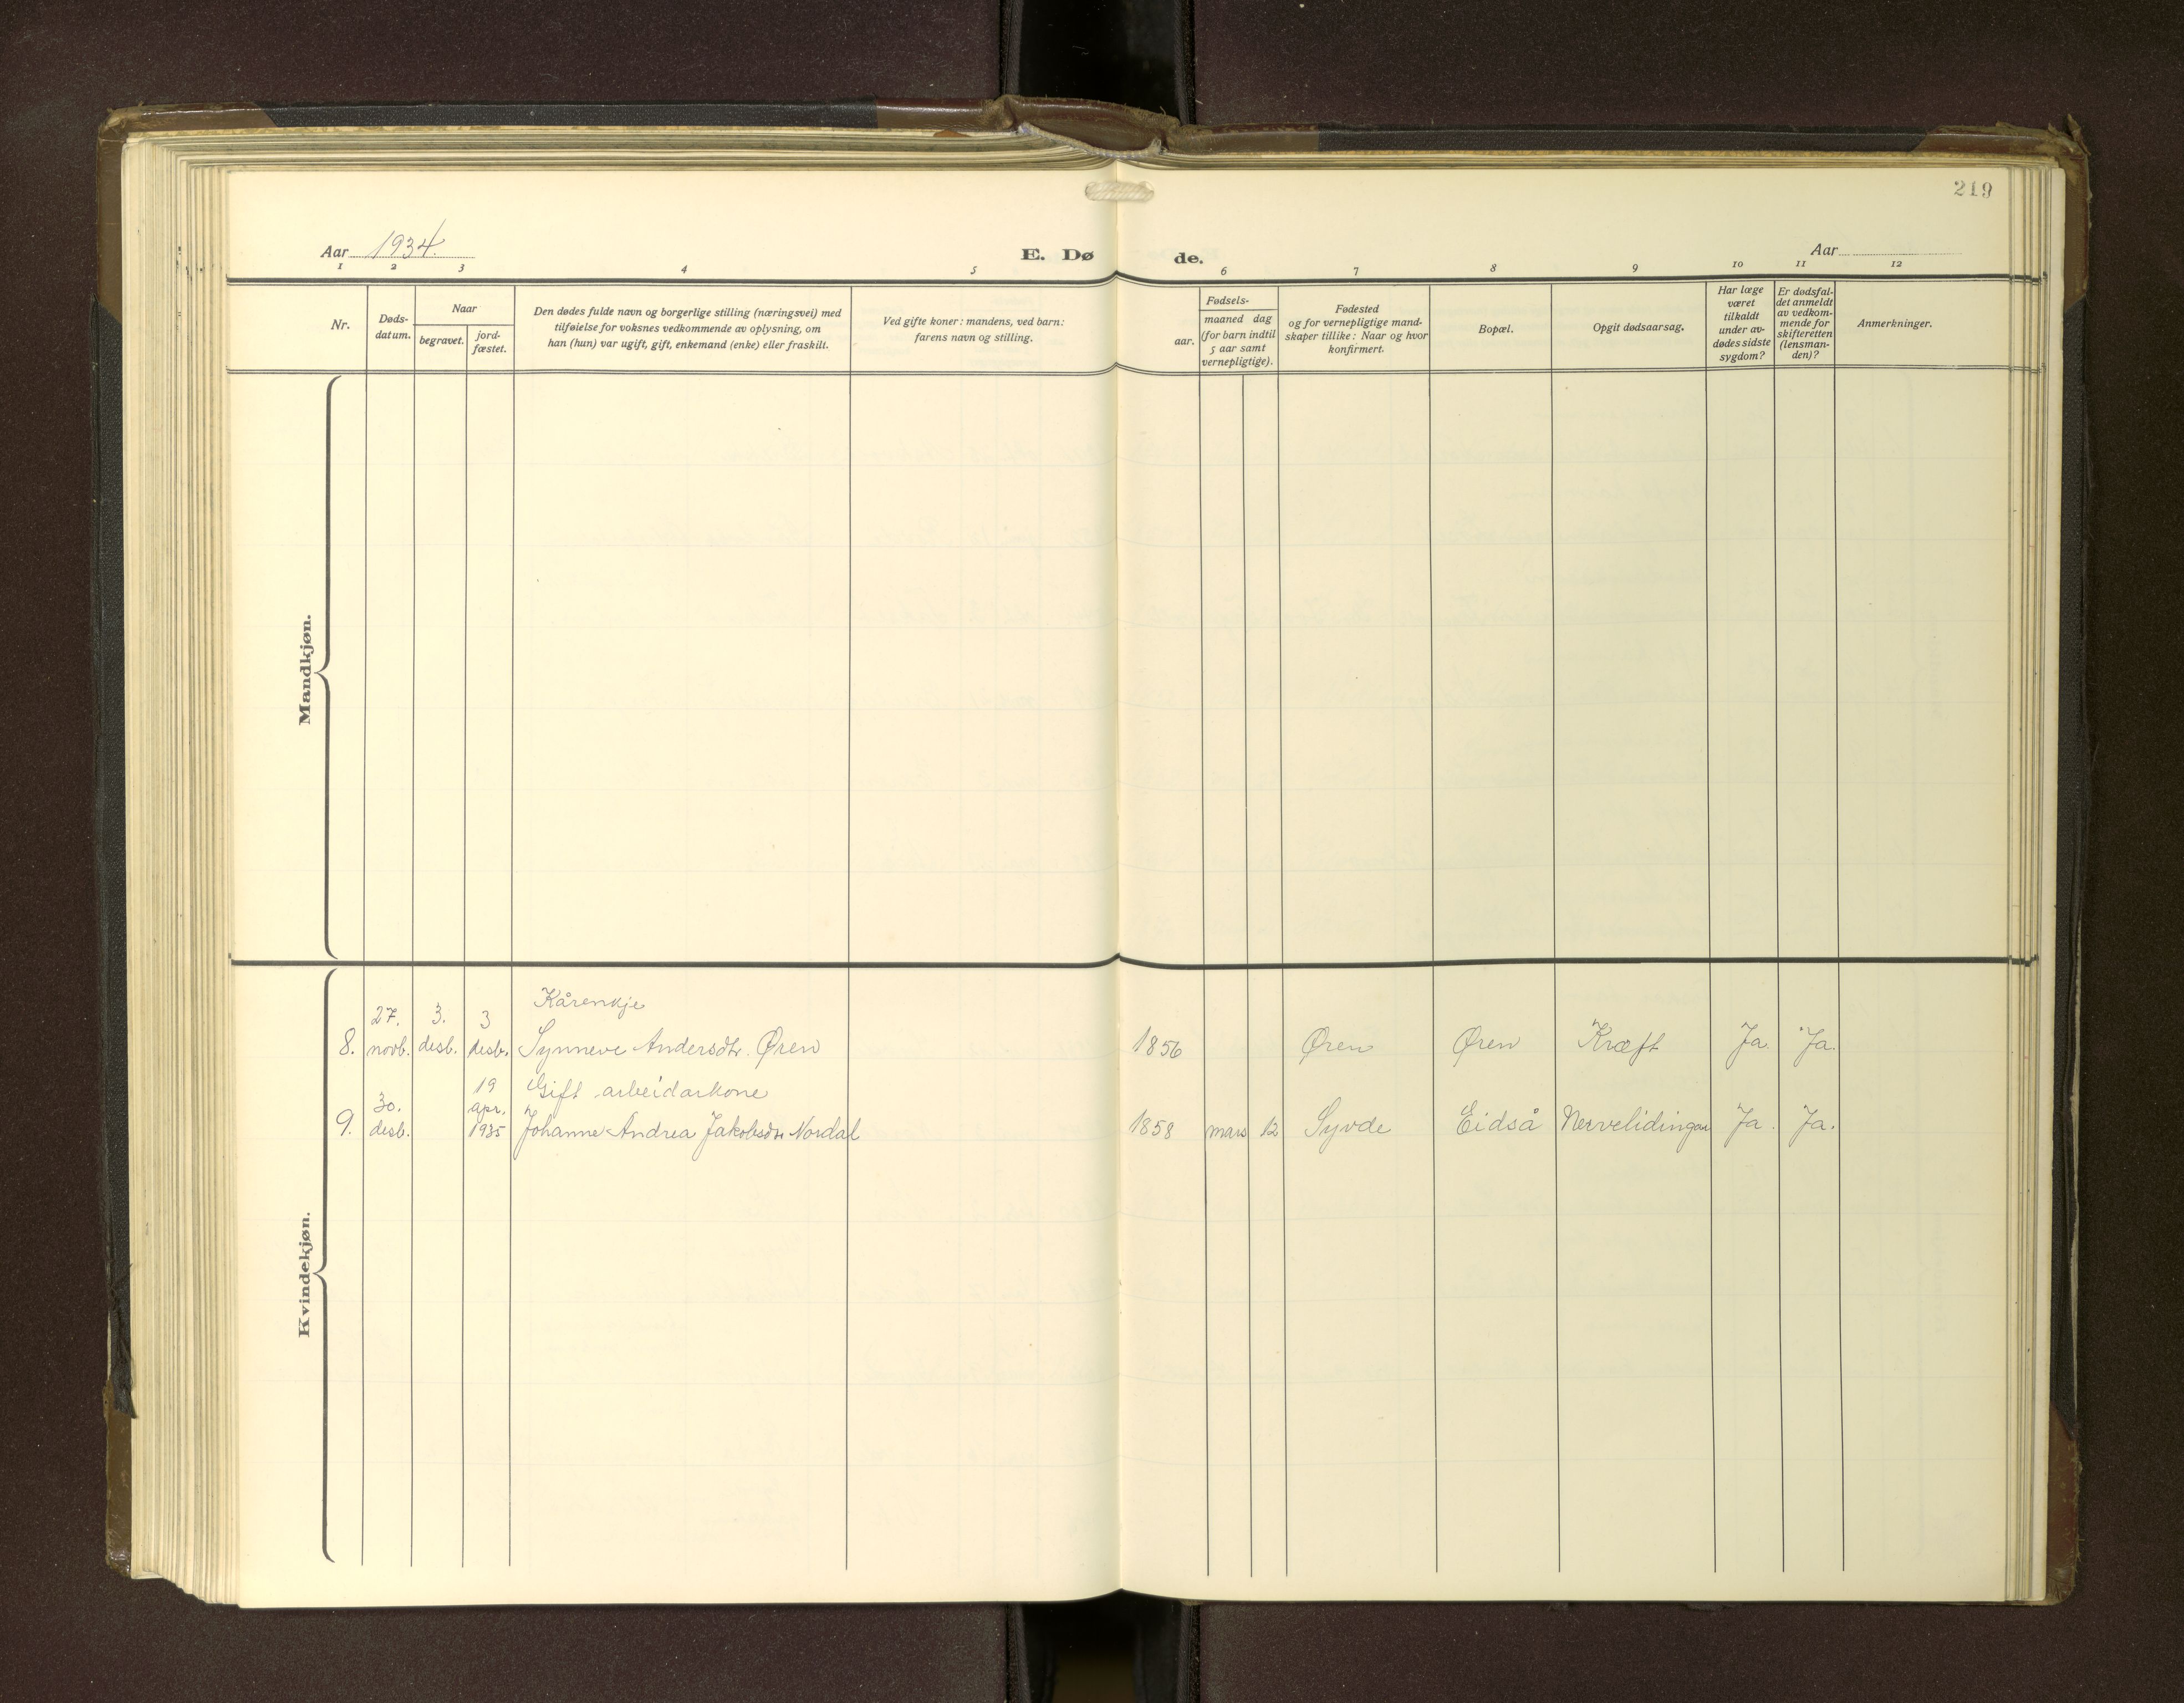 219
Aar 1934.
E. Døde.
Aar
1 2 3 4 5 6 7 8 9 10 11 12
Nr.
Døds-
datum.
Naar
begravet.
jord-
fæstet.
Den dødes fulde navn og borgerlige stilling (næringsvei) med
tilføielse for voksnes vedkommende av oplysning, om
han (hun) var ugift, gift, enkemand (enke) eller fraskilt.
Ved gifte koner: mandens, ved barn:
farens navn og stilling.
Fødsels-
aar.
maaned dag
(for barn indtil
5 aar samt
vernepligtige).
Fødested
og for vernepligtige mand-
skaper tillike: Naar og hvor
konfirmert.
Bopæl.
Opgit dødsaarsag.
Har læge
været
tilkaldt
under av-
dødes sidste
sygdom?
Er dødsfal-
det anmeldt
av vedkom-
mende for
skifteretten
(lensman-
den)?
Anmerkninger.
Mandkjøn.
Kvindekjøn.
27. 3. 3 Kårenkje
8. novb. desb. desb. Synneve Andersdtr. Øren 1856 Øren Øren Kræft Ja. Ja.
19 Gift arbeidarkone
30. apr.
9. desb. 1935 Johanne Andrea Jakobsdtr Nordal 1858 mars 12 Syvde Eidså Nervelidingar Ja. Ja.